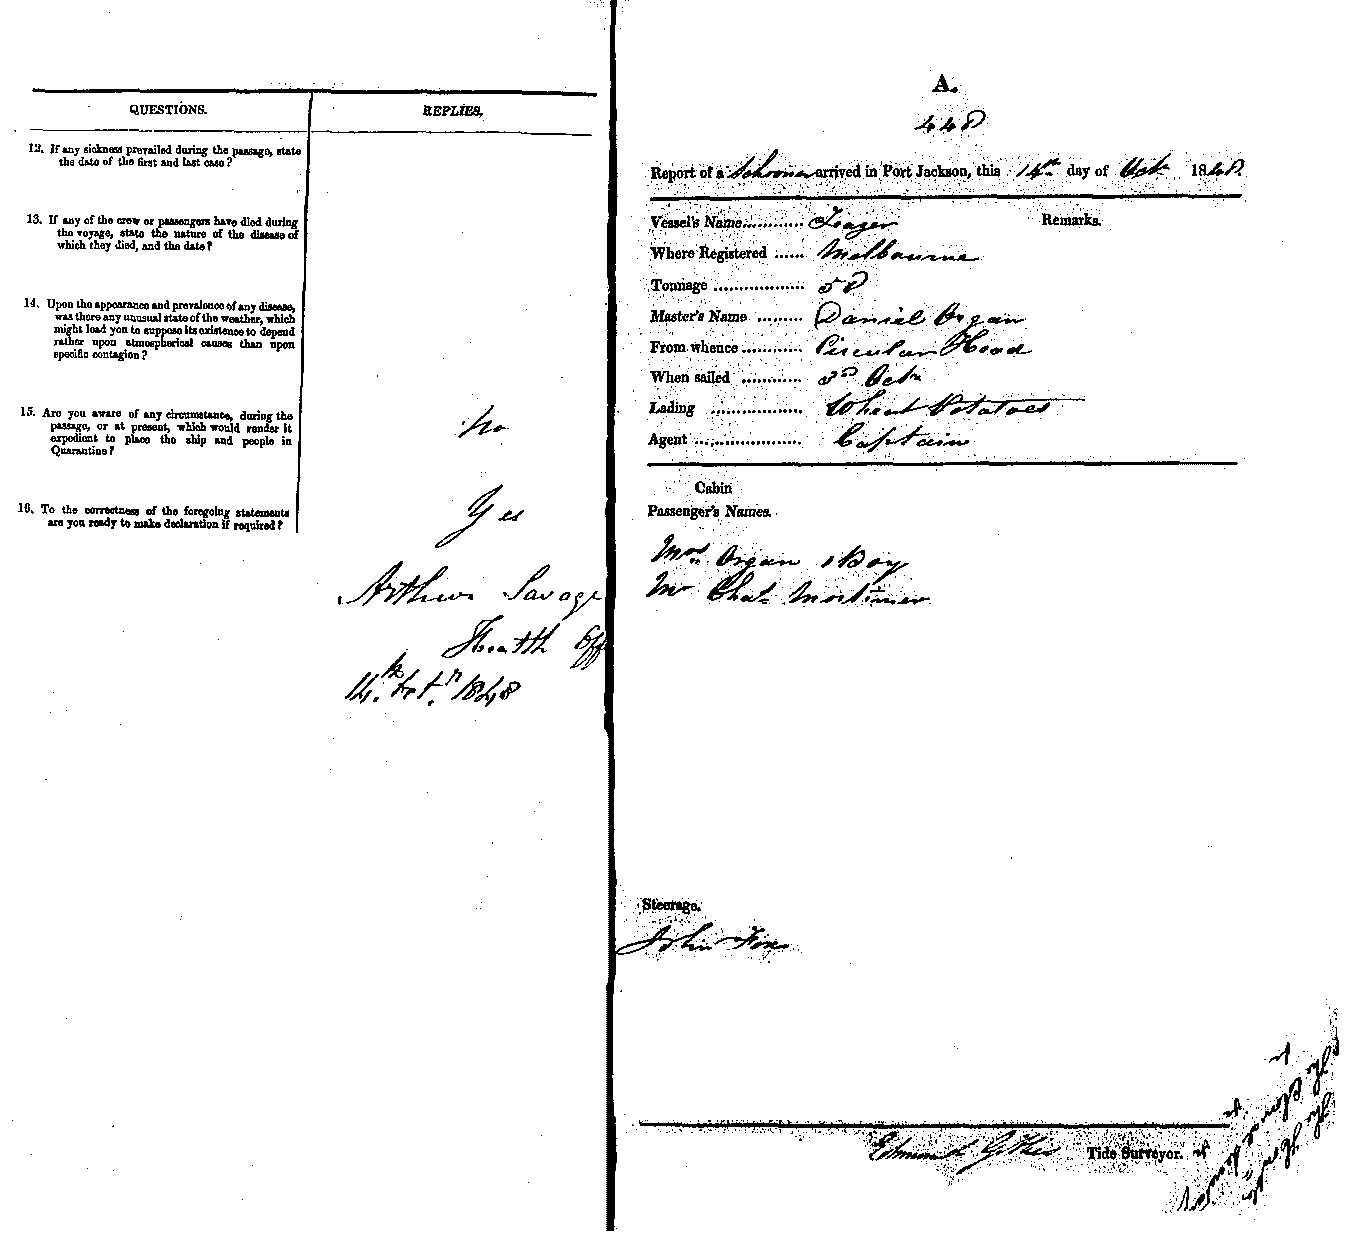 QUESTIONS.
REPLIES.
12. If any sickness prevailed during the passage, state
the date of the first and last case?
13. If any of the crew or passengers have died during
the voyage, state the nature of the disease of
which they died, and the date?
14. Upon the appearance and prevalence of any disease,
was there any unusual state of the weather, which
might lead you to suppose its existence to depend
rather upon atmospherical causes than upon
specific contagion?
15. Are you aware of any circumstance, during the
passage, or at present, which would render it
expedient to place the ship and people in
Quarantine?
No
16. To the correctness of the foregoing statements
are you ready to make declaration if required?
Yes
Arthur Savage
Health Off
14th Octr. 1848
A.
448
Report of a Schooner arrived in Port Jackson, this 14th day of Octr 1848.
Vessel's Name........... 
Remarks.
Where Registered ...... Melbourne
Tonnage .................. 58
Master's Name ......... Daniel Organ
From whence............ Circular Head
When sailed ............ Octr
Lading .................. Wheat Potatoes
Agent ..................... Captain
Cabin
Passenger's Names.
Mrs Organ 1 Boy
Mr Chas. Mortimer
Steerage.
John Fox
Edmund Tide Surveyor.